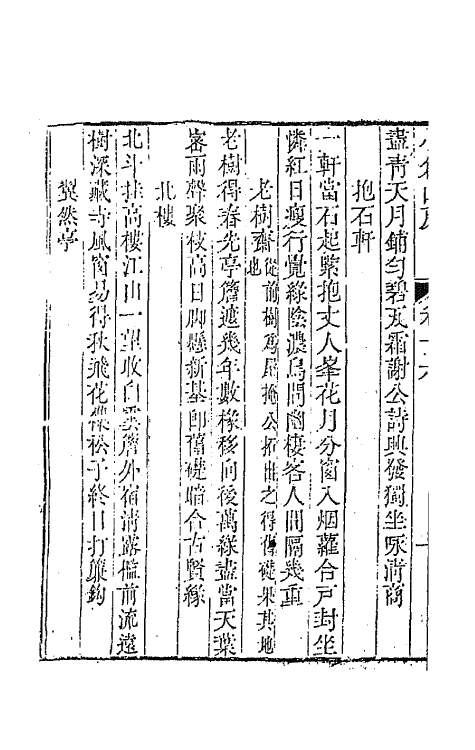 盡青天月鋪勻碧瓦霜謝公詩興發獨坐咏清商
抱石軒
一軒當石起緊抱丈人峯花月分窗入烟蘿合戶封坐
憐紅日瘦行覺綠陰濃鳥問幽棲客人間隔幾重
老樹齋從前樹為屋掩公拓出之得舊礎果其地也
老樹得春先亭簷遮幾年數椽移向後萬綠盡當天葉
密雨聲聚枝高日脚懸新基即舊礎暗合古賢緣
北樓
北斗挂高樓江山一望收白雲簷外宿清露檻前流遠
樹深藏寺風窗易得秋飛花傑松子終日打簾鉤
翼然亭